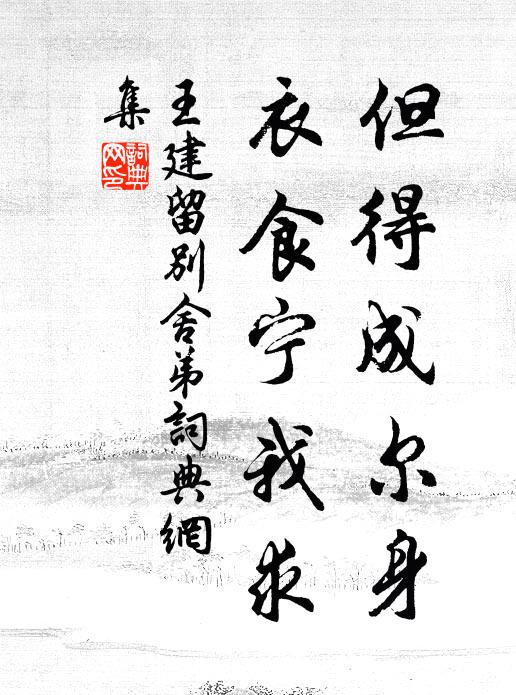 但得成尔身
衣食宁我求
王建留别舍弟詞典網
集
詞典
网印